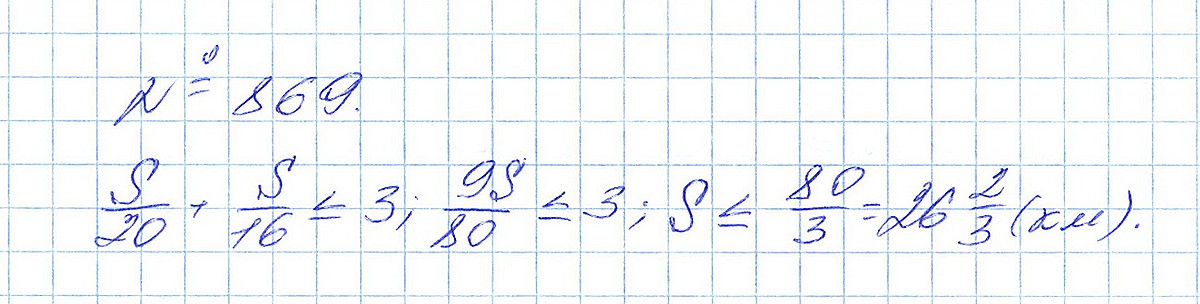 № 869.
S/20 + S/16 ≤ 3; 9S/80 ≤ 3; S ≤ 80/3 = 26 2/3 (км).